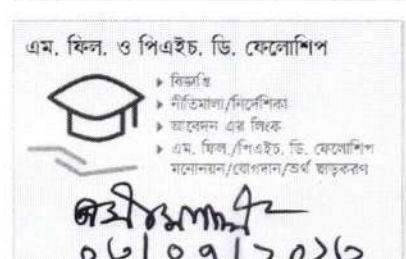 এম. ফিল. ও পিএইচ. ডি. ফেলোশিপ
বিজ্ঞপ্তি
নীতিমালা/নির্দেশিকা
আবেদন এর লিংক
এম. ফিল./পিএইচ. ডি. ফেলোশিপ
মনোনয়ন/যোগদান/অর্থ ছাড়করণ